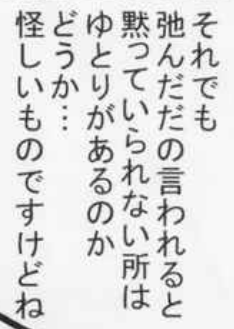 それでも
弛んだだの言われると
黙っていられない所は
ゆとりがあるのか
どうか…
怪しいものですけどね